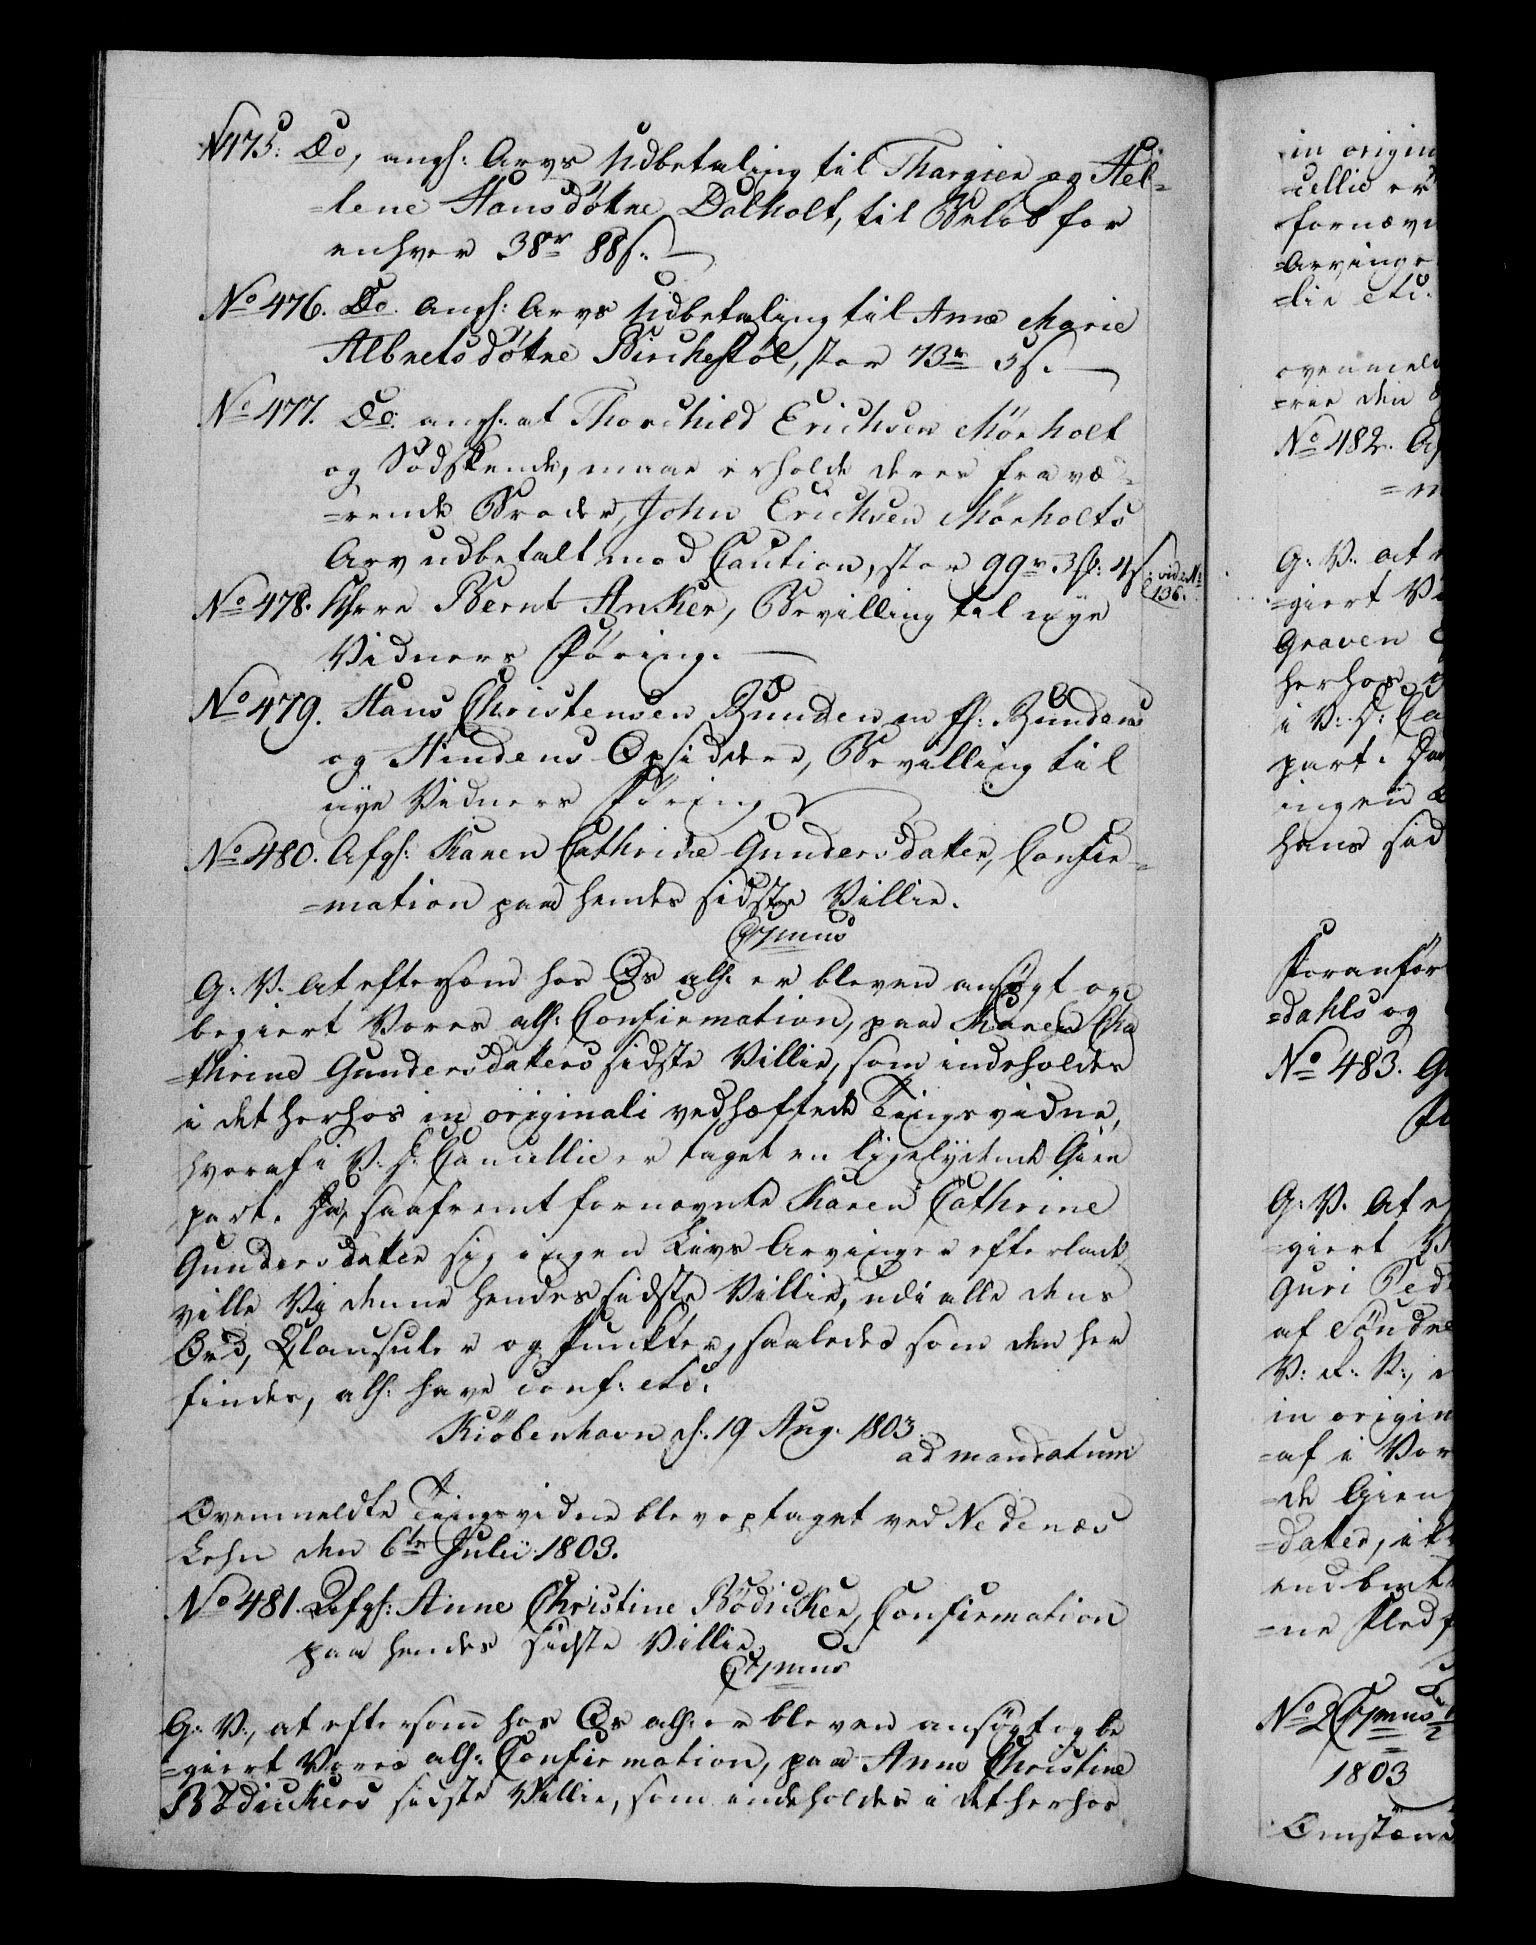 N475. Do, angh: Arvs Udbetaling til Thargier og Hel=
=lene Hansdøtre Dalholt, til Beløb for
enhver 38rr 88s.
No 476. Do. angh: Arvs Udbetaling til Anne Marie
Albretsdøtre Birchestøl, stor 73r 5s.
No 477. Do. angh: at Thorchild Erichsen Mørholt
og Sødskende, maae erholde deres fravæ=
=rende Broder, John Erichsen Mørholts
Arv udbetalt mod Caution, stor 99r 3ß: 4s. vide No
136.
No 478. Hrr Bernt Anker, Bevilling til nye
Vidners Føring.
No 479. Hans Christensen Bunden m fl: Bundens
og Hindens Opsiddere, Bevilling til
nye Vidners Føring
No 480. Afgh: Karen Cathrine Gundersdatter, Confir=
=mation paa hendes sidste Villie.
G: V: At eftersom hos Os alh: er bleven ansøgt og
begiert Vores alh: Confirmation, paa Karen Cha
=thrine Gundersdatters sidste Villie, som indeholdes
i det herhos in originali vedhæftede Tingsvidne,
hvoraf i V: D: Cancellie er taget en ligelydende Gien
part. Da, saafremt fornævnte Karen Cathrine
Gundersdatter sig ingen Livs Arvinger efterlader
ville Vi denne hendes sidste Villie, udi alle dens
Ord, Clausuler og Puncter, saaledes som den her
findes, alh: have conf: etc.
Kiøbenhavn d: 19 Aug. 1803.
ad mandatum
Ovenmeldte Tingsvidne blev optaget ved Nedenæs
Lehn den 6te Julii 1803.
No 481. Afgh: Anne Christine Bødicker, Confirmation
paa hendes sidste Villie.
G: V:, at eftersom hos Os alh: er bleven ansøgt og be
=giert Vores alh: Confirmation, paa Anne Christine
Bødickers sidste Villie, som indeholdes i det herhos
in origin
cellie er
fornævn
Arvinge
=lie etc.
ovenmeld
=rie den
No 482. Af
G: V: at
=giert V
Graven
herhos
i V: D: Ca
part. Da
ingen
hans sid
Foranfør
=dahls og
No 483. G
G: V. At
=giert
Guri Ped
af Søndre
in origin
=af i Vor
=de Gien
=datter, i
No 2
1803
Omstænd